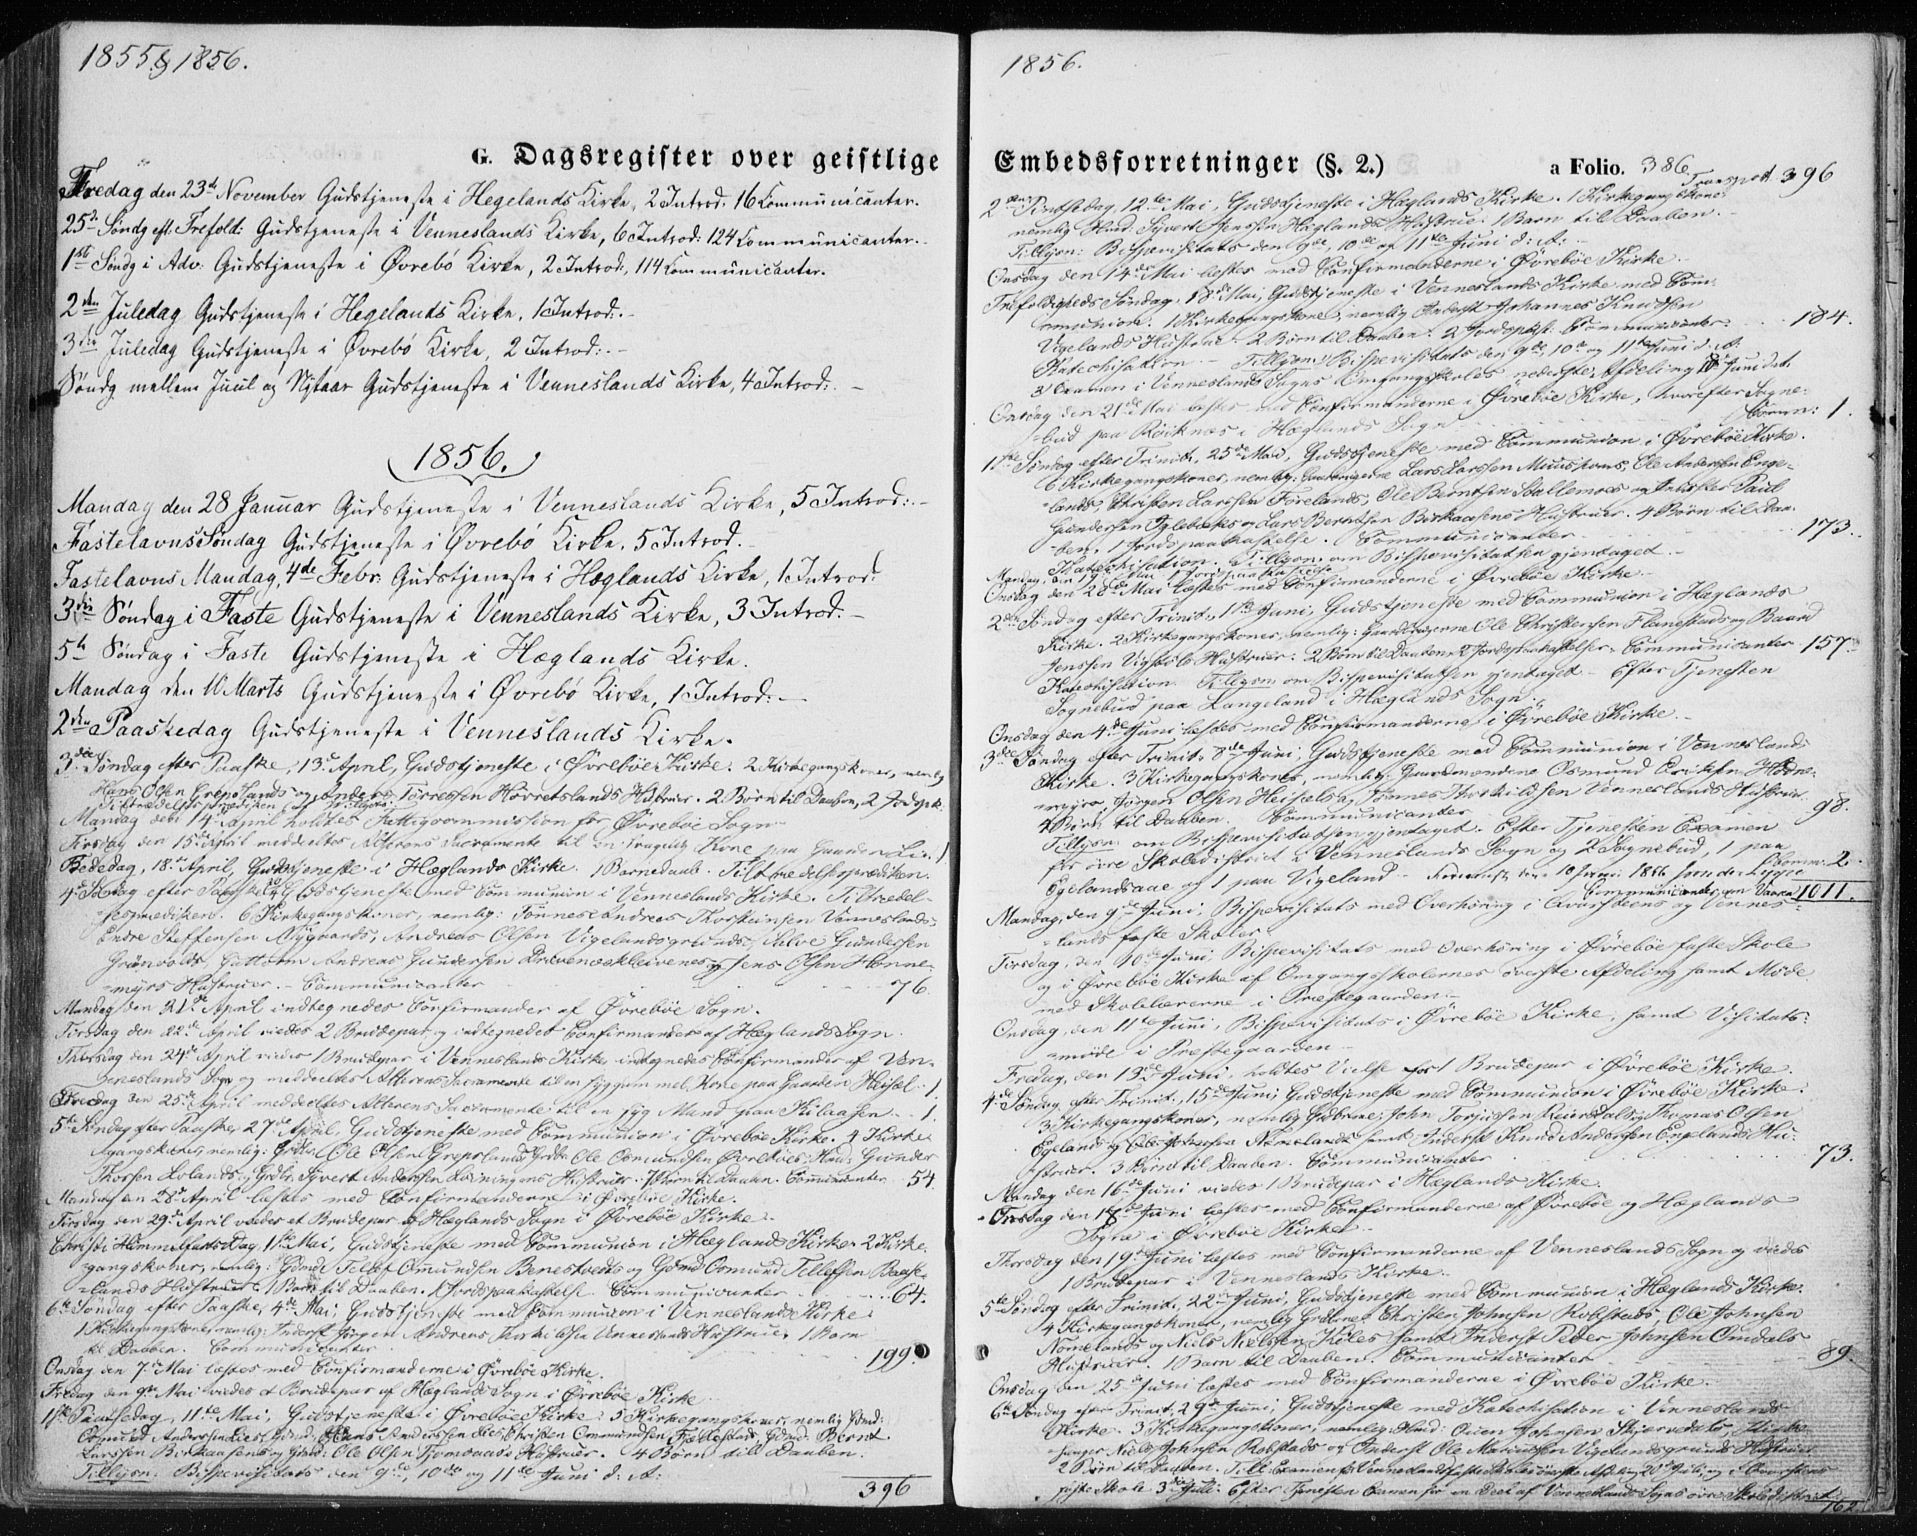 1855 & 1856.
G. Dagsregister over geistlige
Fredag den 23d November Gudstjeneste i Hegelands Kirke, 2 Introd: 16 Communicanter.
25de Søndg eft. Trefold: Gudstjeneste i Venneslands Kirke, 6 Introd: 124 Communicanter.
1ste Søndg i Adv: Gudstjeneste i Øvrebö Kirke, 2 Introd:, 114 Communicanter.
2den Juledag Gudstjeneste i Hegelands Kirke, 1 Introd:.-
3die Juledag Gudstjeneste i Øvrebö Kirke, 2 Introd:.-
Söndg mellem Juul og Nytaar Gudstjeneste i Venneslands Kirke, 4 Introd:.-
1856.
Mandag den 28 Januar Gudstjeneste i Venneslands Kirke, 5 Introd:.-
Fastelavns Søndag Gudstjeneste i Øvrebö Kirke, 5 Introd.
Fastelavns Mandag, 4de Febr: Gudstjeneste i Hæglands Kirke, 1 Introd:
3die Søndag i Faste Gudstjeneste i Venneslands Kirke, 3 Introd.-
5te Søndag i Faste Gudstjeneste i Hæglands Kirke.
Mandag den 10 Marts Gudstjeneste i Øvrebö Kirke, 1 Introd:.-
2den Paaskedag Gudstjeneste i Venneslands Kirke.
3die Søndag efter Paaske, 13de April, Gudstjeneste i Øvrebøe Kirke. 2 Kirkegangskoner, nemlig
Hans Olsen Grepslands og Anders Torressen Hövretslands Hustruer. 2 Børn til Daaben, 2 Jordspk.
Tiltrædelsesprædiken
Mandag den 14de April holdtes Fattigcommission for Øvrebøe Sogn
Tirsdag den 15de April meddeeltes Alterens Sacramente til en Kone paa Gaarden 1
Bededag, 18de April, Gudstjeneste i Hæglands Kirke. 1 Barnedaab. Tiltrædelsesprædiken.
4de Søndag efter Paaske, Gudstjeneste med Communion i Venneslands Kirke. Tiltrædel-
sesprædiken. 6 Kirkegangskoner, nemlig: Tønnes Andreas Venneslands
Endre Steffensen Nygaards, Andreas Olsen Vigelandsgrunds, Salve Gundersen
Grønvolds, Guttorm Andreas Gundersen Drivenesklevenes og Jens Olsen Honne-
myrs Hustruer. Communicanter 76
Mandag den 21de April indtegnedes Confirmander af Øvrebøe Sogn.
Tirsdag den 22de April viedes 2 Brudepar og indtegnedes Confirmander af Hæglands Sogn
Thorsdag den 24de April viedes 1 Brudepar i Venneslands Kirke indtegnedes Confirmander af Ven-
neslands Sogn og meddeeltes Alterens Sacramente til en Kone paa Gaarden Heisel 1.
Fredag den 25de April meddeeltes Alterens Sacramente til en syg Mand paa Kilaasen 1.
5te Søndag efter Paaske, 27de April, Gudstjeneste med Communion i Øvrebøe Kirke. 4 Kirke-
gangskoner, nemlig: Ole Olsen Grepslands, Ole Osmundsen Øvrebøes, Gunder
Thorsen Lolands, Sjvert Andersen Hustruer. 1 Børn til Daaben. Communicanter 54.
Mandag den 28de April læstes med Confirmanderne i Øvrebøe Kirke.
Tirsdag den 29de April viedes et Brudepar af Hæglands Sogn i Øvrebøe Kirke.
Christi Himmelfarts Dag, 1ste Mai, Gudstjeneste med Communion i Hæglands Kirke. 2 Kirke-
gangskoner, nemlig: Gbmd Tellef Omundsen Benestvedts og Gbmd Osmund Tellefsen
lands Hustruer. 1 Barn til Daaben. 1 Jordspaakastelse. Communicanter 64.
6te Søndag efter Paaske, 4de Mai, Gudstjeneste med Communion i Venneslands Kirke.
1 Kirkegangskone, nemlig: Inderst Jørgen Andreas Venneslands Hustrue. 1 Barn
til Daaben. Communicanter 199.
Onsdag den 7de Mai læstes med Confirmanderne i Øvrebøe Kirke.
Fredag den 9de Mai viedes et Brudepar af Hæglands Sogn i Øvrebøe Kirke
1ste Pintsedag, 11te Mai, Gudstjeneste i Øvrebøe Kirke. 5 Kirkegangskoner, nemlig Gbmd:
Osmund Anderssen Christen Osmundsen Gbmd: Bernt
Larssen Birkaasens og Gbmd: Ole Olsen Hustruer. 4 Børn til Daaben.
Tillysn: Bispevisitats den 9de, 10de og 11te Juni d: A:
396
1856.
Embedsforretninger (§. 2.)
a Folio. 386
Transport 396
2den Pintsedag, 12te Mai, Gudstjeneste i Hæglands Kirke. 1 Kirkegangskone
nemlig Huusd. Syvert Jenssen Hæglands Hustrue. 1 Barn til Daaben.
Tillysn: Bispevisitats den 9de, 10de og 11te Juni d: A:
Onsdag den 14de Mai læstes med Confirmanderne i Øvrebøe Kirke.
Trefoldigheds Søndag, 18de Mai, Gudstjeneste i Venneslands Kirke med Com-
munion. 1 Kirkegangskone, nemlig Inderst Johannes Knudsen
Vigelands Hustrue. 2 Børn til Daaben. 2 Jordspkst. Communicanter 184.
Katechisation. Tillysn: Bispevisitats den 9de, 10de og 11te Juni d: A:
Examen i Venneslands Sogns Omgangsskoles nederste Afdeling
Onsdag den 21de Mai læstes med Confirmanderne i Øvrebøe Kirke, hvorefter Sogne-
bud paa Röiknæs i Hæglands Sogn 1.
1ste Søndag efter Trinit., 25de Mai, Gudstjeneste med Communion i Øvrebøe Kirke.
6 Kirkegangskoner, nemlig: Gaardbrugerne Lars Larssen Ole Andersen Enge-
lands, Christen Larssen Førelands, Ole Berntsen Stallemoes og Inderster Paul
Gundersen Iglebæks og Lars Berntsen Birkaasens Hustruer. 4 Børn til Daa-
ben. 1 Jordspaakastelse. Communicanter 173.
Katechisation. Tillysn. om Bispevisitatsen gjentaget.
Mandag, den 19de Mai 1 Jordspaakastelse
Onsdag den 28de Mai læstes med Confirmanderne i Øvrebøe Kirke
2den Søndag efter Trinit., 1ste Juni, Gudstjeneste med Communion i Hæglands
Kirke. 2 Kirkegangskoner, nemlig: Gaardbrugerne Ole Christensen og Baard
Jenssen Hustruer. 2 Børn til Daaben. 2 Jordspaakastelser. Communicanter 157
Katechisation. Tillysn om Bispevisitatsen gjentaget. Efter Tjenesten
Sognebud paa Langeland i Hæglands Sogn.
Onsdag den 4de Juni læstes med Confirmanderne i Øvrebøe Kirke.
3die Søndag efter Trinit., 8de Juni, Gudstjeneste med Communion i Venneslands
Kirke. 3 Kirkegangskoner, nemlig: Gaardmændene Osmund Eriksen Honne-
myrs, Jørgen Olsen Heisels og Tønnes Thorkildsen Venneslands Hustruer.
Børn til Daaben. Communicanter 98.
Tillysn. om Bispevisitatsen gjentaget. Efter Tjenesten Examen
for øvre Skoledistrict i Venneslands Sogn og 2 Sognebud, 1 paa
Egelandsaae og 1 paa Vigeland Comm: 2.
1011.
Mandag, den 9de Juni, Bispevisitats med Overhøring i Qvarsteens og Vennes-
lands faste Skoler.
Tirsdag, den 10de Juni, Bispevisitats med Overhøring i Øvrebøe faste Skole
og i Øvrebøe Kirke af Omgangsskolernes øverste Afdeling samt Møde
med Skolelærerne i Præstegaarden.
Onsdag, den 11te Juni, Bispevisitats i Øvrebøe Kirke, samt Visitats-
møde i Præstegaarden
Fredag, den 13de Juni, holdtes Vielse for 1 Brudepar i Øvrebøe Kirke.
4de Søndag efter Trinit., 15de Juni, Gudstjeneste med Communion i Øvrebøe Kirke.
3 Kirkegangskoner, nemlig Gbbrne: John Torjusen Reiersdals, Thomas Olsen
Egelands og samt Inderst Knud Andersen Engelands Hu-
struer. 3 Børn til Daaben. Communicanter 73.
Mandag den 16de Juni viedes 1 Brudepar i Hæglands Kirke.
Onsdag den 18de Juni læstes med Confirmanderne af Øvrebøe og Hæglands
Sogne i Øvrebøe Kirke.
Thorsdag den 19de Juni læstes med Confirmanderne af Venneslands Sogn og viedes
1 Brudepar i Venneslands Kirke.
5te Søndag efter Trinit., 22de Juni, Gudstjeneste med Communion i Hæglands Kirke.
4 Kirkegangskoner, nemlig Gbrdne Christen Johnsen Robstads, Ole Johnsen
Nomelands og Niels Nielsen Kiles samt Inderst Peder Johnsen Omdals
Hustruer. 1 Barn til Daaben. Communicanter 89.
Onsdag den 25de Juni læstes med Confirmanderne i Øvrebøe Kirke.
6te Søndag efter Trinit., 29de Juni, Gudstjeneste med Katechisation i Venneslands
Kirke. 3 Kirkegangskoner, nemlig Huusd: Ouen Johnsen Skjersedals, Kirke-
sanger Niels Johnsen Robstads og Inderst Ole Mariussen Vigelandsgrunds Hustruer.
2 Børn til Daaben. Till. Examen i Venneslands faste Skoles øverste Afdeling 20de Juli, og i Qvarsteens
faste Skole 3die Juli. Efter Tjenesten Examen for en Deel af Venneslands Sogns øvre Skoledistrict
162.